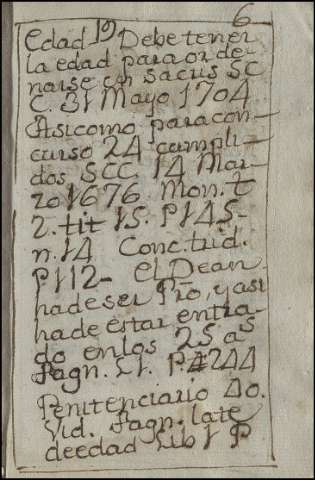 6
Edad 19 Debe tener
la edad para orde
narse in sacris SC
C. 31 Mayo 1704
Asi como para con-
curso 24 cumpli-
dos SCC 14 Mar-
zo 1676 Mon. t
2. tit 15. P 145-
n. 14 Conc. trid.
P 112- El Dean
ha de ser Pro, y asi
ha de estar entra-
do en los 25 as
Pagn. L1. P. 244
Penitenciario 40.
Vid. Pagn. late
de edad Lib 1 P